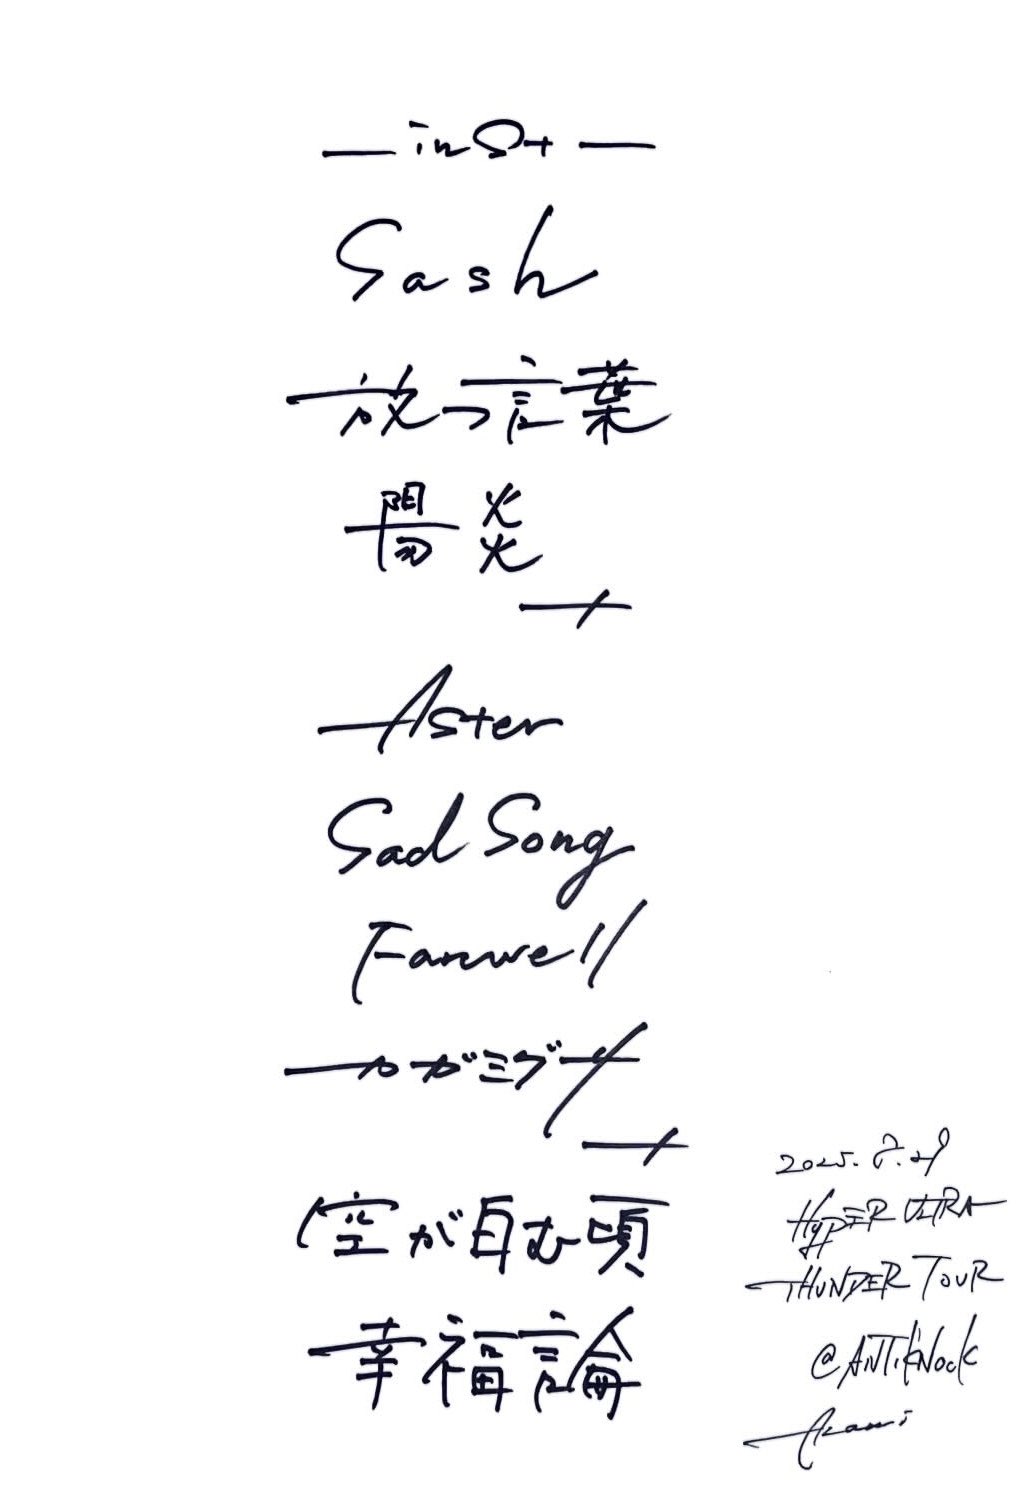 — inSt —
Sash
放つ言葉
陽炎
Aster
Sad Song
Farewell
カガミヅサ
空が白む頃
幸福論
2025.8.29
HYPER ULTRA
THUNDER TOUR
@ANTiKNOCK